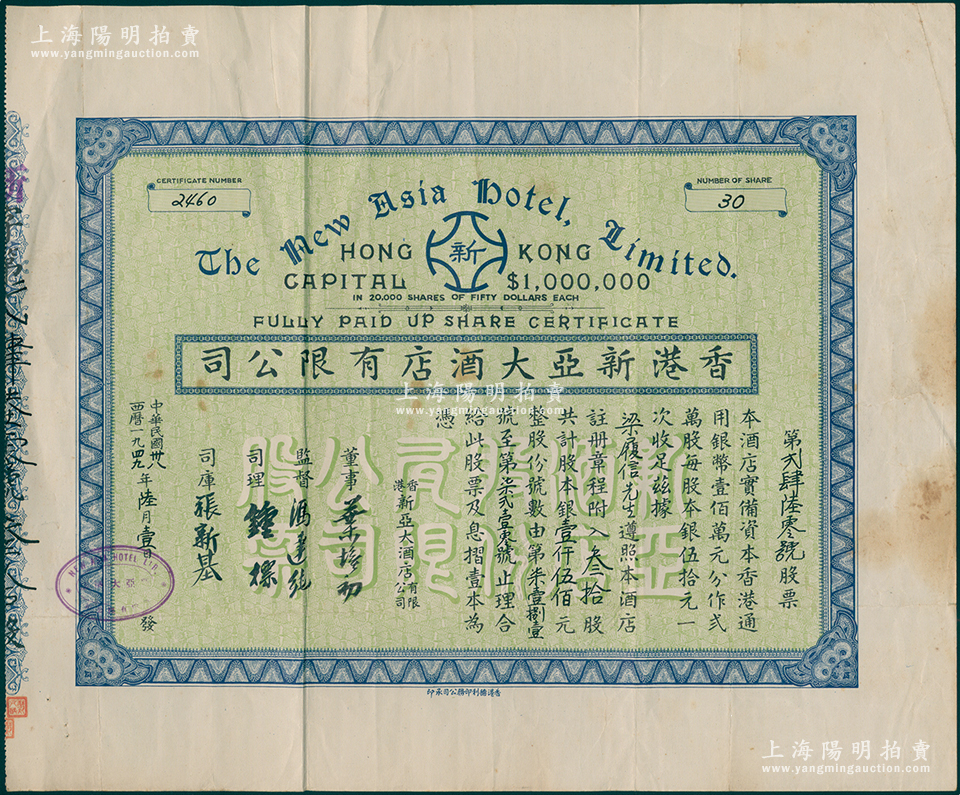 上海陽明拍賣
www.yangmingauction.com
上海陽明拍賣
www.yangmingauction.com
CERTIFICATE NUMBER
2460
NUMBER OF SHARE
30
The New Asia Hotel, Limited.
HONG 新 KONG
CAPITAL $1,000,000
IN 20,000 SHARES OF FIFTY DOLLARS EACH
FULLY PAID UP SHARE CERTIFICATE
司公限有店酒大亞新港香
上海陽明拍賣
www.yangmingauction.com
第弍肆陸零號股票
本酒店實備資本香港通
用銀幣壹佰萬元分作弍
萬股每股本銀伍拾元一
次收足茲據
梁履信先生遵照本酒店
註册章程附入叁拾股
共計股本銀壹仟伍佰元
整股份號數由第柒壹捌壹
號至第柒弍壹零號止理合
給此股票及息摺壹本為
憑
香港新亞大酒店有限公司
董事
監督
司理
司庫 張新基
中華民國卅八
西曆一九四九年陸月壹日發
NEW ASIA HOTEL LTD.
香港勝利印務公司承印
上海陽明拍賣
www.yangmingauction.com